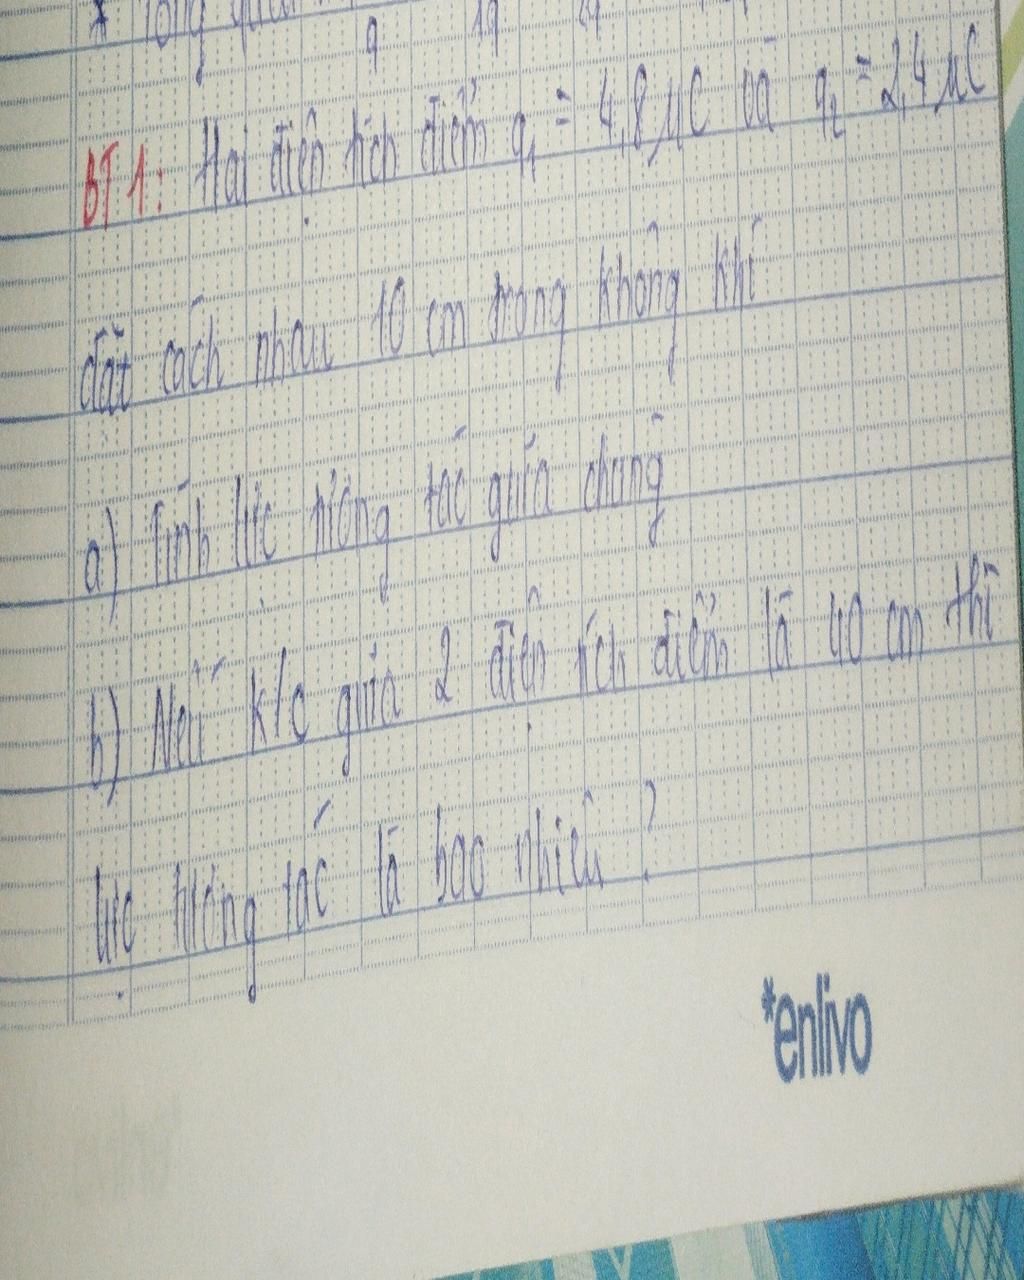 * Tổng quát
q
BT 1: Hai điện tích điểm q₁ = 4,8 μC và q₂ = 2,4 μC
đặt cách nhau 10 cm trong không khí
a) Tính lực tương tác giữa chúng
b) Nếu k/c giữa 2 điện tích điểm là 40 cm thì
lực tương tác là bao nhiêu ?
*enlivo